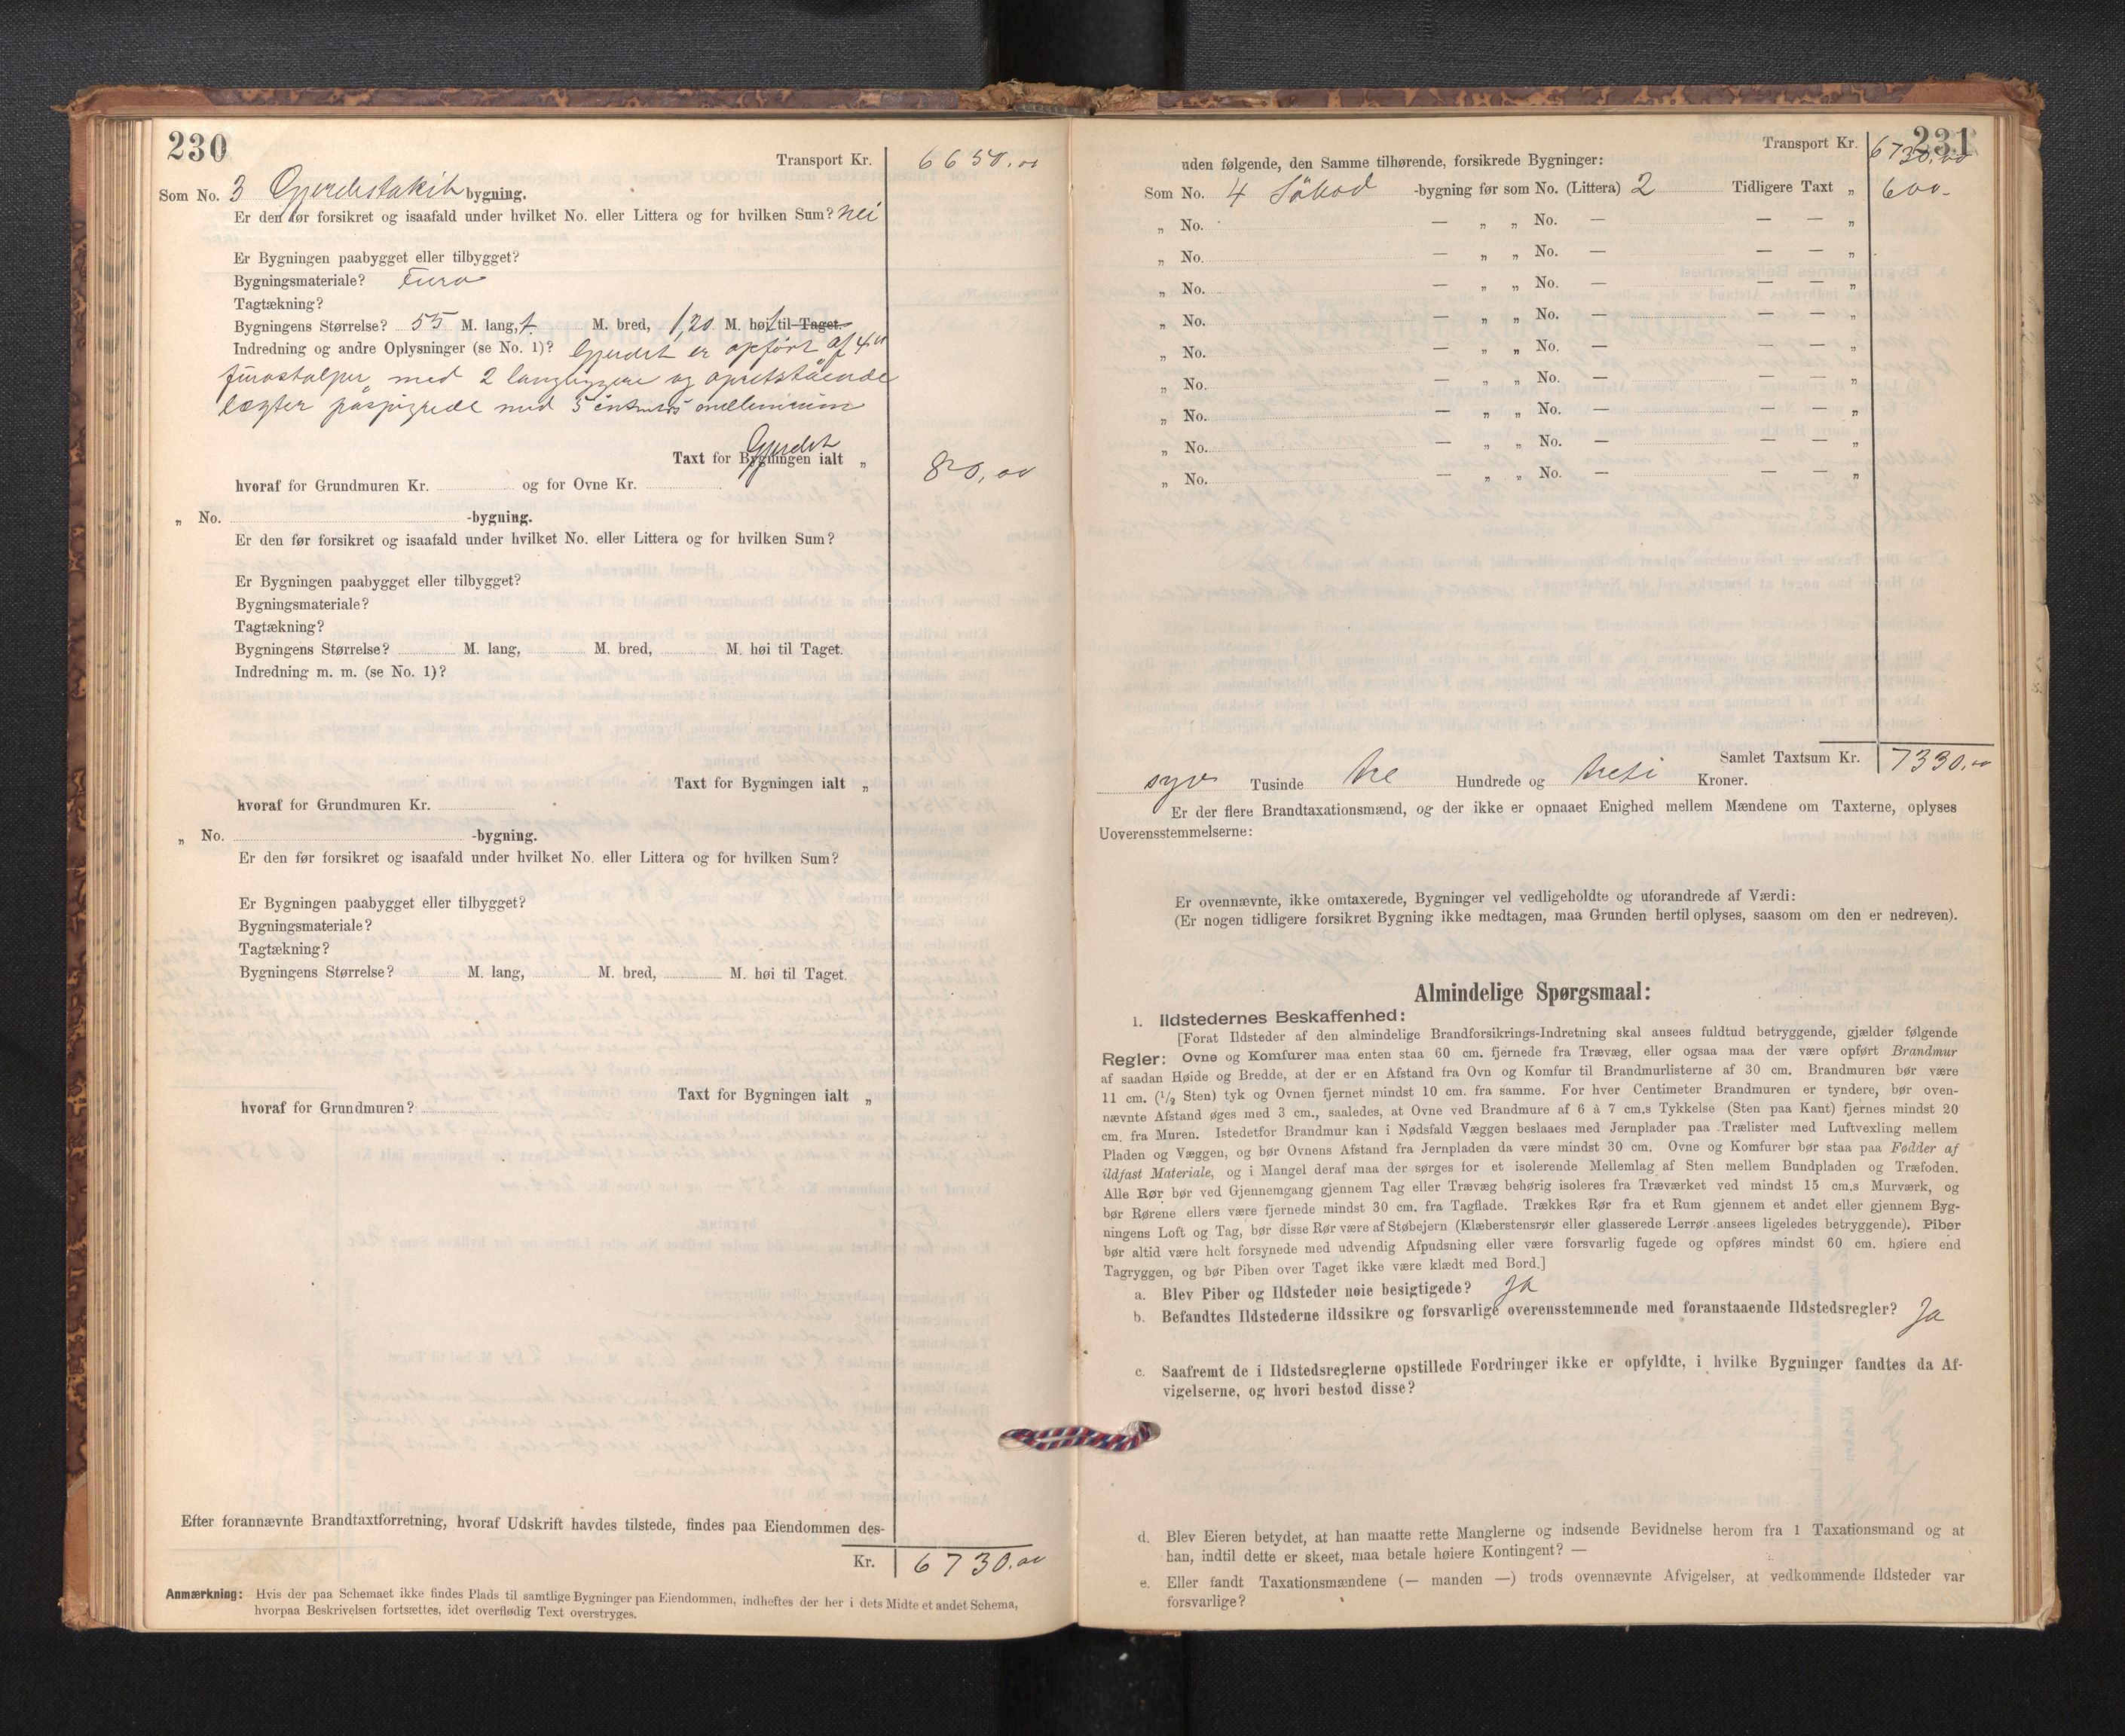 230
Transport Kr. 6650.00
Som No. 3 Gjerdestakit bygning.
Er den før forsikret og isaafald under hvilket No. eller Littera og for hvilken Sum? nei
Er Bygningen paabygget eller tilbygget?
Bygningsmateriale? Furu
Tagtækning?
Bygningens Størrelse? 55 M. lang, M. bred, 1,20 M. høit til Taget.
Indredning og andre Oplysninger (se No. 1)? Gjerdet er opført af 4"
furustolper med 2 langliggere og opretstaaende
lægter paaspigrede med 5 mellemrum
Gjerdet
Taxt for Bygningen ialt „ 80,00
hvoraf for Grundmuren Kr. og for Ovne Kr.
„ No. -bygning.
Er den før forsikret og isaafald under hvilket No. eller Littera og for hvilken Sum?
Er Bygningen paabygget eller tilbygget?
Bygningsmateriale?
Tagtækning?
Bygningens Størrelse? M. lang, M. bred, M. høi til Taget.
Indredning m. m. (se No. 1)?
Taxt for Bygningen ialt „
hvoraf for Grundmuren Kr.
„ No. -bygning.
Er den før forsikret og isaafald under hvilket No. eller Littera og for hvilken Sum?
Er Bygningen paabygget eller tilbygget?
Bygningsmateriale?
Tagtækning?
Bygningens Størrelse? M. lang, M. bred, M. høi til Taget.
Taxt for Bygningen ialt „
hvoraf for Grundmuren?
Efter forannævnte Brandtaxtforretning, hvoraf Udskrift havdes tilstede, findes paa Eiendommen des-
Kr. 6730.00
Anmærkning: Hvis der paa Schemaet ikke findes Plads til samtlige Bygninger paa Eiendommen, indheftes der her i dets Midte et andet Schema,
hvorpaa Beskrivelsen fortsættes, idet overflødig Text overstryges.
231
Transport Kr. 6730.00
uden følgende, den Samme tilhørende, forsikrede Bygninger:
Som No. 4 Söbod -bygning før som No. (Littera) 2 Tidligere Taxt „ 600-
„ No. — „ „ No. — — — „
„ No. — „ „ No. — — — „
„ No. — „ „ No. — — — „
„ No. — „ „ No. — — — „
„ No. — „ „ No. — — — „
„ No. — „ „ No. — — — „
„ No. — „ „ No. — — — „
„ No. — „ „ No. — — — „
„ No. — „ „ No. — — — „
Samlet Taxtsum Kr. 7330.00
syv Tusinde tre Hundrede og treti Kroner.
Er der flere Brandtaxationsmænd, og der ikke er opnaaet Enighed mellem Mændene om Taxterne, oplyses
Uoverensstemmelserne:
Er ovennævnte, ikke omtaxerede, Bygninger vel vedligeholdte og uforandrede af Værdi:
(Er nogen tidligere forsikret Bygning ikke medtagen, maa Grunden hertil oplyses, saasom om den er nedreven).
Almindelige Spørgsmaal:
1. Ildstedernes Beskaffenhed:
[Forat Ildsteder af den almindelige Brandforsikrings-Indretning skal ansees fuldtud betryggende, gjælder følgende
Regler: Ovne og Komfurer maa enten staa 60 cm. fjernede fra Trævæg, eller ogsaa maa der være opført Brandmur
af saadan Høide og Bredde, at der er en Afstand fra Ovn og Komfur til Brandmurlisterne af 30 cm. Brandmuren bør være
11 cm. (1/2 Sten) tyk og Ovnen fjernet mindst 10 cm. fra samme. For hver Centimeter Brandmuren er tyndere, bør oven-
nævnte Afstand øges med 3 cm., saaledes, at Ovne ved Brandmure af 6 à 7 cm.s Tykkelse (Sten paa Kant) fjernes mindst 20
cm. fra Muren. Istedetfor Brandmur kan i Nødsfald Væggen beslaaes med Jernplader paa Trælister med Luftvexling mellem
Pladen og Væggen, og bør Ovnens Afstand fra Jernpladen da være mindst 30 cm. Ovne og Komfurer bør staa paa Fødder af
ildfast Materiale, og i Mangel deraf maa der sørges for et isolerende Mellemlag af Sten mellem Bundpladen og Træfoden.
Alle Rør bør ved Gjennemgang gjennem Tag eller Trævæg behørig isoleres fra Træværket ved mindst 15 cm.s Murværk, og
bør Rørene ellers være fjernede mindst 30 cm. fra Tagflade. Trækkes Rør fra et Rum gjennem et andet eller gjennem Byg-
ningens Loft og Tag, bør disse Rør være af Støbejern (Klæberstensrør eller glasserede Lerrør ansees ligeledes betryggende). Piber
bør altid være helt forsynede med udvendig Afpudsning eller være forsvarlig fugede og opføres mindst 60 cm. høiere end
Tagryggen, og bør Piben over Taget ikke være klædt med Bord.]
a. Blev Piber og Ildsteder nøie besigtigede? Ja
b. Befandtes Ildstederne ildssikre og forsvarlige overensstemmende med foranstaaende Ildstedsregler? Ja
c. Saafremt de i Ildstedsreglerne opstillede Fordringer ikke er opfyldte, i hvilke Bygninger fandtes da Af-
vigelserne, og hvori bestod disse?
d. Blev Eieren betydet, at han maatte rette Manglerne og indsende Bevidnelse herom fra 1 Taxationsmand og at
han, indtil dette er skeet, maa betale høiere Kontingent? —
e. Eller fandt Taxationsmændene (— manden —) trods ovennævnte Afvigelser, at vedkommende Ildsteder var
forsvarlige?